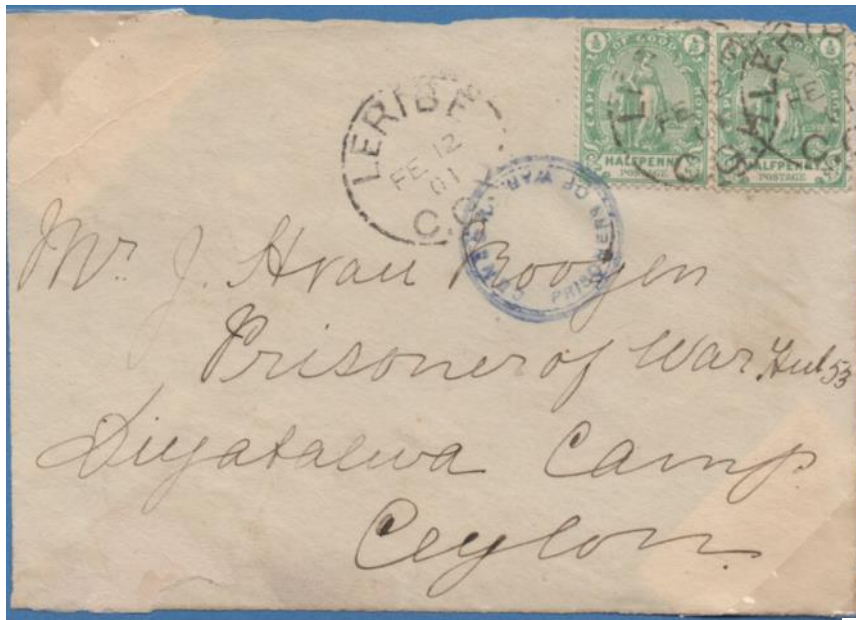 CAPE OF GOOD HOPE
½ ½
HALFPENNY
POSTAGE
CAPE OF GOOD HOPE
½ ½
HALFPENNY
POSTAGE
LERIBE
FE 12
01
C.G.H
PRISONERS OF WAR
Mr. J. H van Rooyen
Prisoner of War Hut 53
Diyatalawa Camp
Ceylon